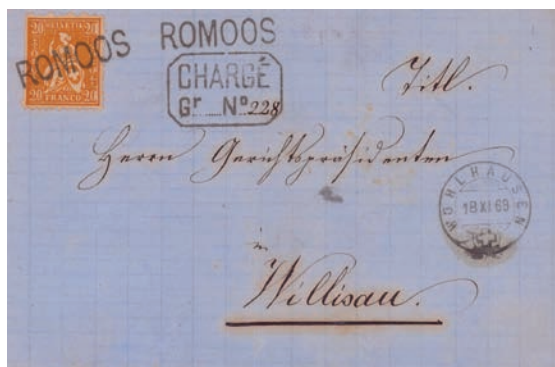 20 HELVETIA 20
20 FRANCO 20
ROMOOS
ROMOOS
CHARGÉ
Gr. Nº 228
Titl.
Herrn Gerichtspräsidenten
in
Willisau.
WOHLHAUSEN
18 XI 69